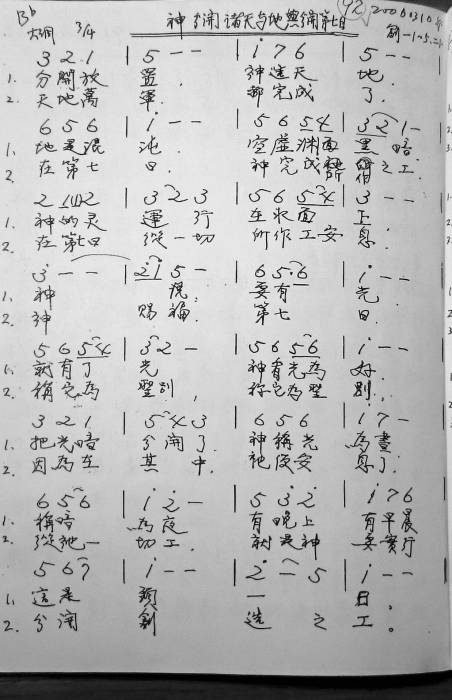 B♭ 大調 3/4 神分開諸天与地與分開第七日 92 20060310
創一1-5.二
3 2 1 | 5 - - | i 7 6 | 5 - -
1. 分開放 置 神造天 地.
2. 天地萬 軍. 都完成 了.
6 5 6 | i - - | 5 6 5 4 | 3 2 1 -
1. 地是混 沌. 空虛淵面 黑暗
2. 在第七 日. 神完成 之工.
2 1 2 | 3 2 3 | 5 6 5 4 | 3 - -
1. 神的灵 運行 在水面 上
2. 在第七日 從一切 所作工安 息.
3 - - | 2 1 5 - | 6 5. 6 | i - -
1. 神 說: 要有 光
2. 神 賜福. 第七 日.
5 6 5 4 | 3 2 - | 5 6 5 6 | i - -
1. 就有了 光 神看光為 好.
2. 稱它為 聖別, 稱它為聖 別.
3 2 1 | 5 4 3 | 6 5 6 | 1 7 -
1. 把光暗 分開了. 神稱光 為晝
2. 因為在 其中. 祂便安 息了.
6 5 6 | i 2 - | 5 3 2 | 1 7 6
1. 稱暗 為夜 有晚上 有早晨
2. 從祂一 切工. 就是神 要實行
5 6 7 | i - - | 2 - 5 | i - -
1. 這是 頭 一 日.
2. 分開 創 造之 工.